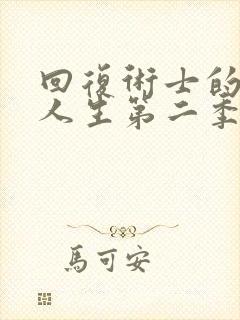 回復術士的
人生第二季
馬可安